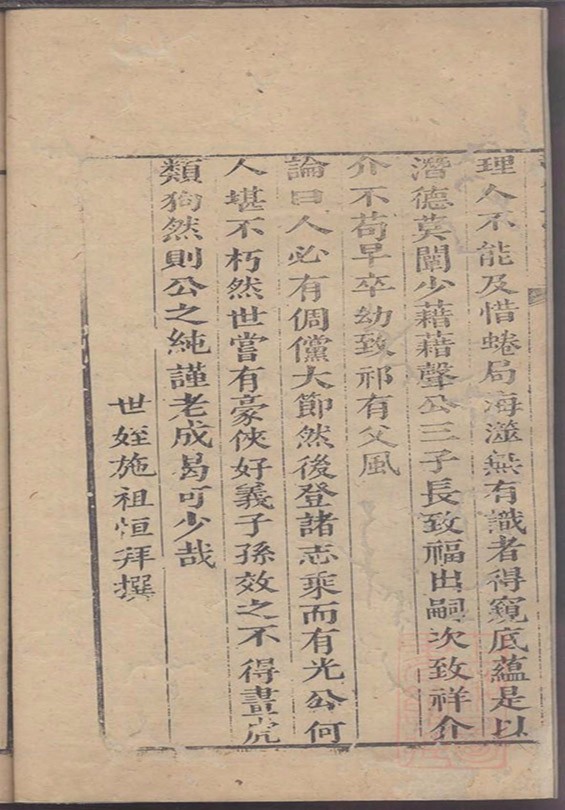 理人不能及惜蜷局海澨無有識者得窺底蘊是以
潛德莫闡少藉藉聲公三子長致福出嗣次致祥介
介不苟早卒幼致祁有父風
論曰人必有倜儻大節然後登諸志乘而有光公何
人堪不朽然世嘗有豪俠好義子孫效之不得畫虎
類狗然則公之純謹老成曷可少哉
世姪施祖恒拜撰